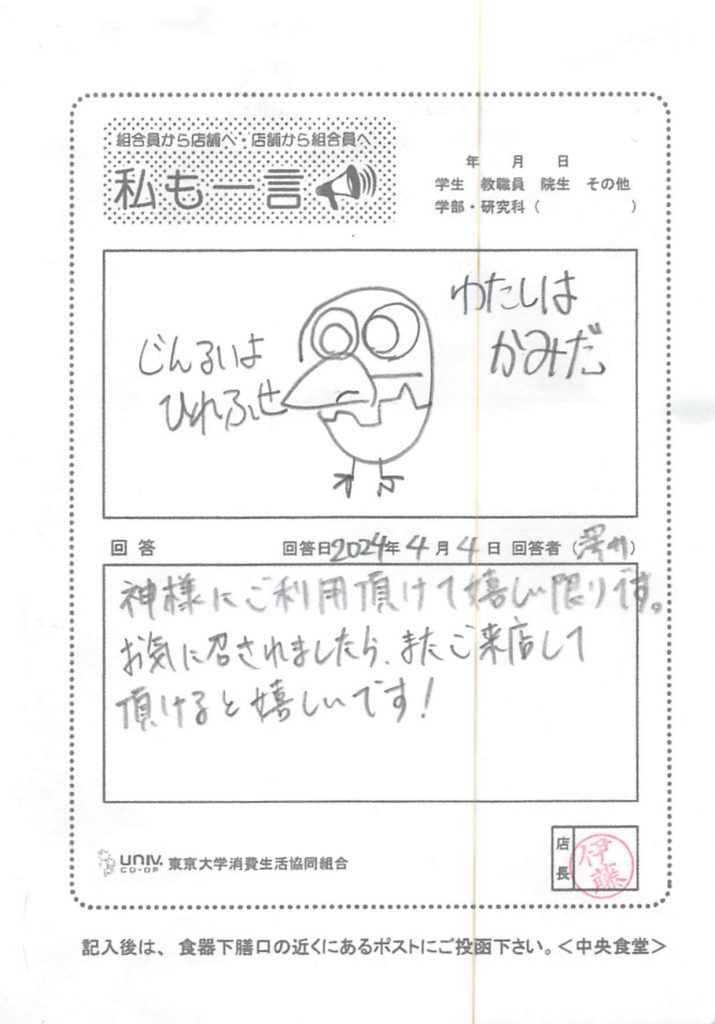 組合員から店舗へ・店舗から組合員へ
私も一言
年 月 日
学生 教職員 院生 その他
学部・研究科( )
わたしは
かみだ
じんるいよ
ひれふせ
回答 回答日2024年4月4日 回答者( )
神様にご利用頂けて嬉しい限りです。
お気に召されましたら、またご来店して
頂けると嬉しいです!
UNIV. CO-OP 東京大学消費生活協同組合
店長 伊藤
記入後は、食器下膳口の近くにあるポストにご投函下さい。<中央食堂>